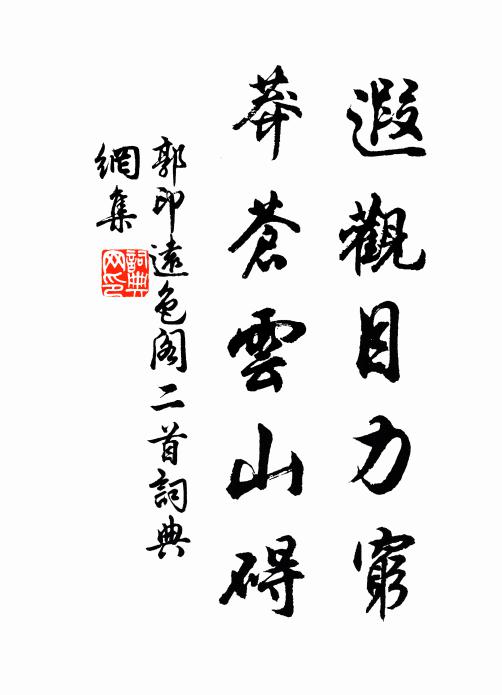 遐觀目力窮
莽蒼雲山碍
郭印遠色閣二首詞典
網集
詞典网印